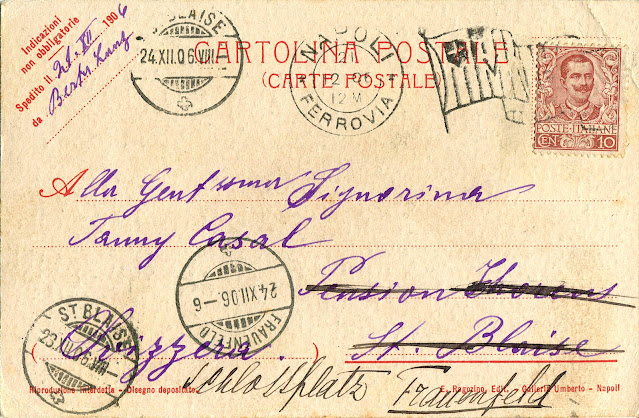 Indicazioni
non obbligatorie
Spedito il 21. XII 1906
da
ST BLAISE
24.XII.06.VIII
CARTOLINA POSTALE
(CARTE POSTALE
NAPOLI
12 M
FERROVIA
POSTE ITALIANE
CEN 10
Alla Gent ssma Signorina
Fanny Casal
Pension
St. Blaise
Svizzera.
24.XII.06.-6
FRAUENFELD
ST BLAISE
Schlossplatz Frauenfeld
Riproduzione interdetta - Disegno depositato
E. Ragozino, Edit. - Galleria Umberto - Napoli